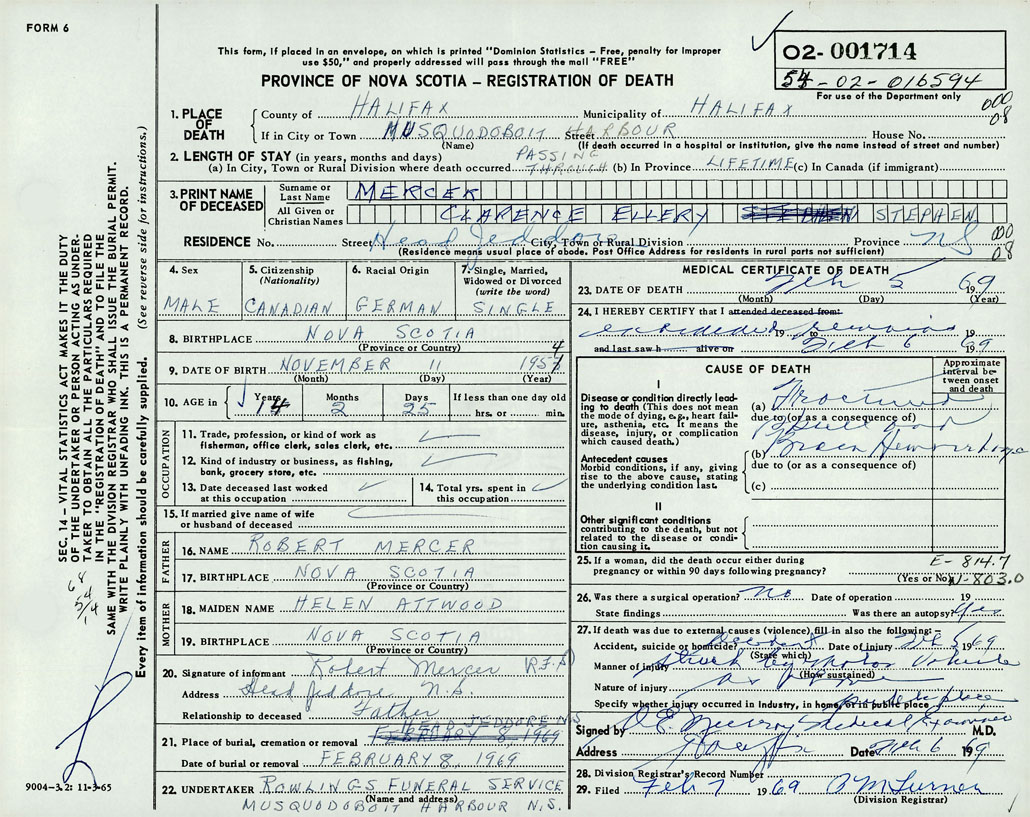 FORM 6
This form, if placed in an envelope, on which is printed "Dominion Statistics – Free, penalty for improper
use $50," and properly addressed will pass through the mail "FREE"
PROVINCE OF NOVA SCOTIA – REGISTRATION OF DEATH
02- 001714
54-02-016594
For use of the Department only
1. PLACE OF DEATH
County of HALIFAX Municipality of HALIFAX
000
08
If in City or Town MUSQUODOBOIT Street HARBOUR House No.
(Name) (If death occurred in a hospital or institution, give the name instead of street and number)
2. LENGTH OF STAY (in years, months and days)
(a) In City, Town or Rural Division where death occurred PASSING THROUGH (b) In Province LIFETIME (c) In Canada (if immigrant)
3. PRINT NAME OF DECEASED
Surname or Last Name MERCER
All Given or Christian Names CLARENCE ELLERY STEPHEN STEPHEN
RESIDENCE No. Street Head Jeddore City, Town or Rural Division Province NS
000
08
(Residence means usual place of abode. Post Office Address for residents in rural parts not sufficient)
4. Sex
MALE
5. Citizenship (Nationality)
CANADIAN
6. Racial Origin
GERMAN
7. Single, Married, Widowed or Divorced (write the word)
SINGLE
8. BIRTHPLACE NOVA SCOTIA
(Province or Country)
9. DATE OF BIRTH NOVEMBER 11 1954
(Month) (Day) (Year)
10. AGE in Years 14 Months 2 Days 25 If less than one day old hrs. or min.
OCCUPATION
11. Trade, profession, or kind of work as fisherman, office clerk, sales clerk, etc.
12. Kind of industry or business, as fishing, bank, grocery store, etc.
13. Date deceased last worked at this occupation
14. Total yrs. spent in this occupation
15. If married give name of wife or husband of deceased
FATHER
16. NAME ROBERT MERCER
17. BIRTHPLACE NOVA SCOTIA
(Province or Country)
MOTHER
18. MAIDEN NAME HELEN ATTWOOD
19. BIRTHPLACE NOVA SCOTIA
(Province or Country)
20. Signature of informant Robert Mercer
Address Head Jeddore N.S.
Relationship to deceased Father
HEAD JEDDORE NS
21. Place of burial, cremation or removal FEBRUARY 8 1969
Date of burial or removal FEBRUARY 8, 1969
22. UNDERTAKER ROWLINGS FUNERAL SERVICE
(Name and address)
MUSQUODOBOIT HARBOUR N.S.
MEDICAL CERTIFICATE OF DEATH
23. DATE OF DEATH Feb 5 1969
(Month) (Day) (Year)
24. I HEREBY CERTIFY that I attended deceased from:
examined remains 19 to 19
and last saw h alive on Feb 6 1969
CAUSE OF DEATH
Approximate interval between onset and death
I
Disease or condition directly leading to death (This does not mean the mode of dying, e.g., heart failure, asthenia, etc. It means the disease, injury, or complication which caused death.)
(a) Fractured
due to (or as a consequence of)
Skull and
Antecedent causes
Morbid conditions, if any, giving rise to the above cause, stating the underlying condition last.
(b) Brain Hemorrhage
due to (or as a consequence of)
(c)
II
Other significant conditions
contributing to the death, but not related to the disease or condition causing it.
25. If a woman, did the death occur either during pregnancy or within 90 days following pregnancy?
(Yes or No)
E-814.7
N-803.0
26. Was there a surgical operation? No Date of operation 19
State findings Was there an autopsy? Yes
27. If death was due to external causes (violence), fill in also the following:–
Accident, suicide or homicide? Accident Date of injury Feb 5 1969
(State which)
Manner of injury Struck by Motor Vehicle
(How sustained)
Nature of injury as above
Specify whether injury occurred in industry, in home, or in public place public place
Signed by Medical Examiner M.D.
Address Halifax Date Feb 6 1969
28. Division Registrar's Record Number
29. Filed Feb 7 1969 M Turner
(Division Registrar)
SEC. 14 – VITAL STATISTICS ACT MAKES IT THE DUTY
OF THE UNDERTAKER OR PERSON ACTING AS UNDERTAKER TO OBTAIN ALL THE PARTICULARS REQUIRED
IN THE "REGISTRATION OF DEATH" AND TO FILE THE
SAME WITH THE DIVISION REGISTRAR WHO SHALL ISSUE THE BURIAL PERMIT.
WRITE PLAINLY WITH UNFADING INK. THIS IS A PERMANENT RECORD.
Every item of information should be carefully supplied. (See reverse side for instructions.)
9004-3.2: 11-3-65